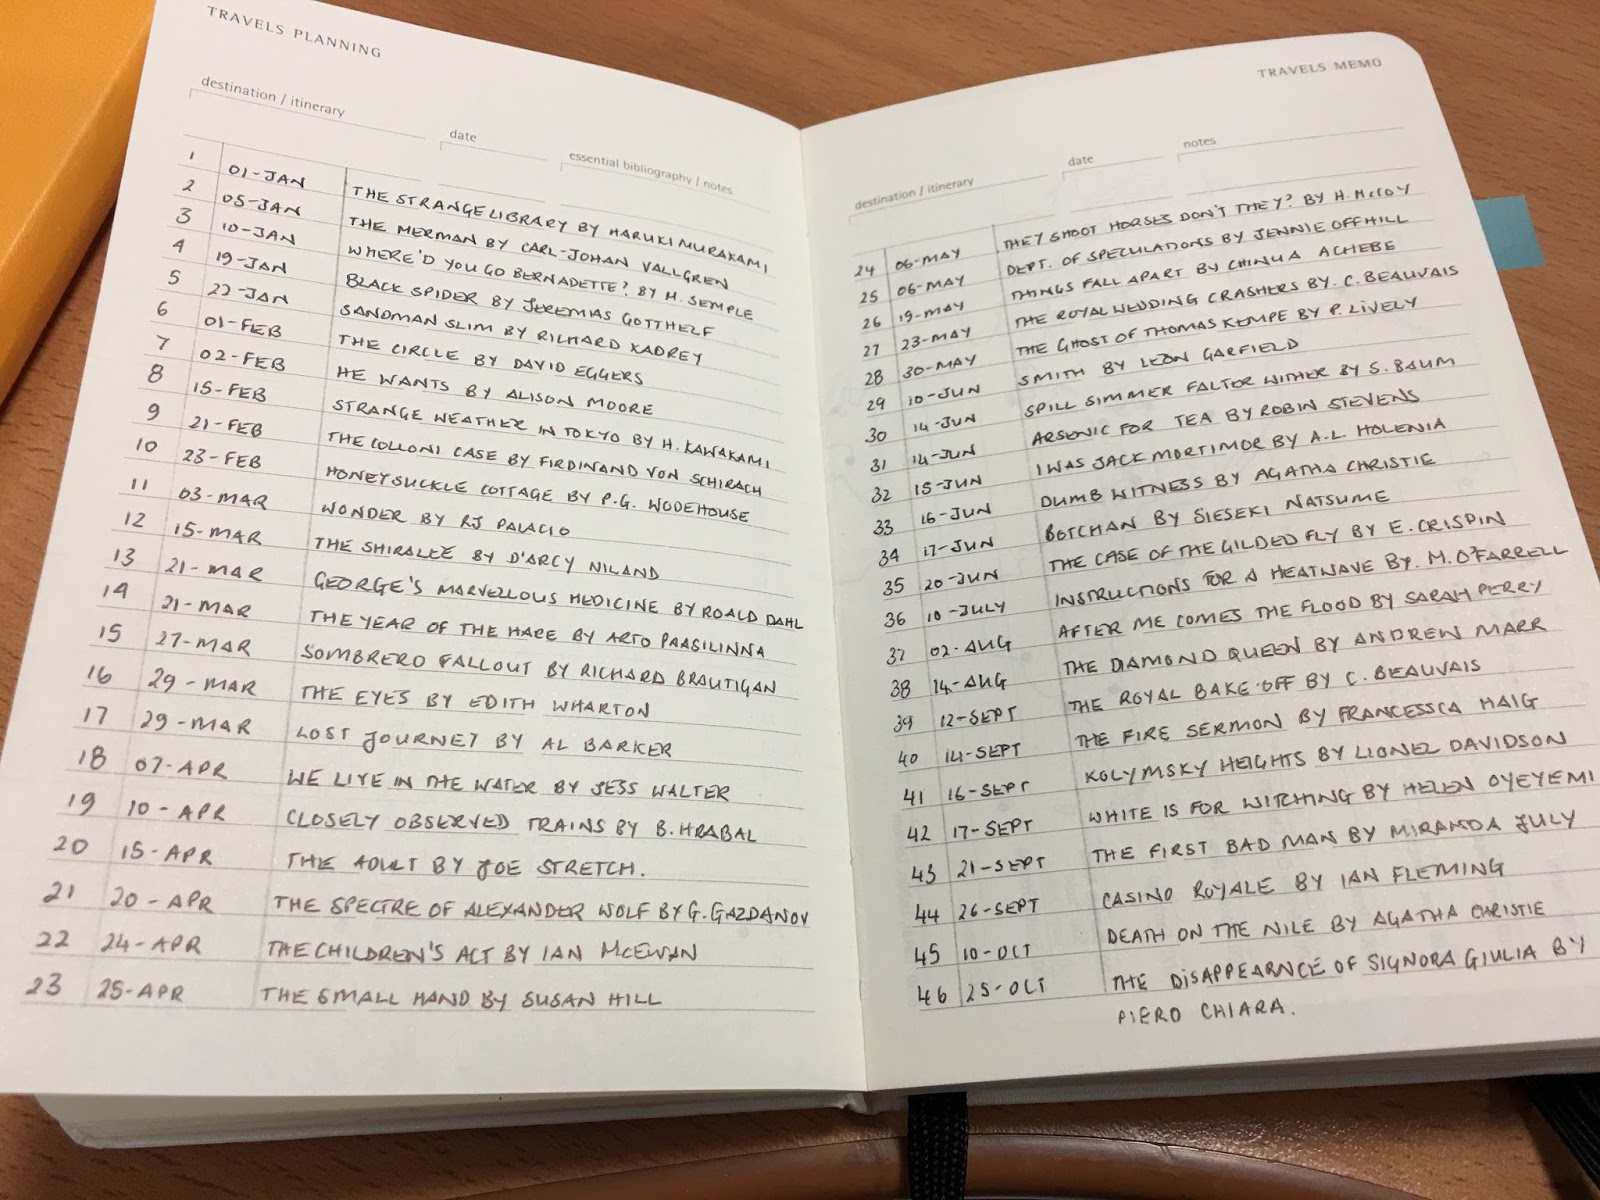 TRAVELS PLANNING
destination / itinerary
date
essential bibliography / notes
1 01-JAN THE STRANGE LIBRARY BY HARUKI MURAKAMI
2 05-JAN THE MERMAN BY CARL-JOHAN VALLGREN
3 10-JAN WHERE'D YOU GO BERNADETTE? BY M. SEMPLE
4 19-JAN BLACK SPIDER BY JEREMIAS GOTTHELF
5 22-JAN SANDMAN SLIM BY RICHARD KADREY
6 01-FEB THE CIRCLE BY DAVID EGGERS
7 02-FEB HE WANTS BY ALISON MOORE
8 15-FEB STRANGE WEATHER IN TOKYO BY H. KAWAKAMI
9 21-FEB THE COLLONI CASE BY FIRDINAND VON SCHIRACH
10 23-FEB HONEYSUCKLE COTTAGE BY P.G. WODEHOUSE
11 03-MAR WONDER BY RJ PALACIO
12 15-MAR THE SHIRALEE BY D'ARCY NILAND
13 21-MAR GEORGE'S MARVELLOUS MEDICINE BY ROALD DAHL
14 21-MAR THE YEAR OF THE HARE BY ARTO PAASILINNA
15 27-MAR SOMBRERO FALLOUT BY RICHARD BRAUTIGAN
16 29-MAR THE EYES BY EDITH WHARTON
17 29-MAR LOST JOURNEY BY AL BARKER
18 07-APR WE LIVE IN THE WATER BY JESS WALTER
19 10-APR CLOSELY OBSERVED TRAINS BY B. HRABAL
20 15-APR THE ADULT BY JOE STRETCH.
21 20-APR THE SPECTRE OF ALEXANDER WOLF BY G. GAZDANOV
22 24-APR THE CHILDREN'S ACT BY IAN McEWAN
23 25-APR THE SMALL HAND BY SUSAN HILL
TRAVELS MEMO
destination / itinerary
date
notes
24 06-MAY THEY SHOOT HORSES DON'T THEY? BY H. McCOY
25 06-MAY DEPT. OF SPECULATIONS BY JENNIE OFFHILL
26 19-MAY THINGS FALL APART BY CHINUA ACHEBE
27 23-MAY THE ROYAL WEDDING CRASHERS BY. C. BEAUVAIS
28 30-MAY THE GHOST OF THOMAS KEMPE BY P. LIVELY
29 10-JUN SMITH BY LEON GARFIELD
30 14-JUN SPILL SIMMER FALTER WITHER BY S. BAUM
31 14-JUN ARSENIC FOR TEA BY ROBIN STEVENS
32 15-JUN I WAS JACK MORTIMOR BY A.L. HOLENIA
33 16-JUN DUMB WITNESS BY AGATHA CHRISTIE
34 17-JUN BOTCHAN BY SIESEKI NATSUME
35 20-JUN THE CASE OF THE GILDED FLY BY E. CRISPIN
36 10-JULY INSTRUCTIONS FOR A HEATWAVE BY. M. O'FARRELL
37 02-AUG AFTER ME COMES THE FLOOD BY SARAH PERRY
38 14-AUG THE DIAMOND QUEEN BY ANDREW MARR
39 12-SEPT THE ROYAL BAKE-OFF BY C. BEAUVAIS
40 14-SEPT THE FIRE SERMON BY FRANCESSCA HAIG
41 16-SEPT KOLYMSKY HEIGHTS BY LIONEL DAVIDSON
42 17-SEPT WHITE IS FOR WITCHING BY HELEN OYEYEMI
43 21-SEPT THE FIRST BAD MAN BY MIRANDA JULY
44 26-SEPT CASINO ROYALE BY IAN FLEMING
45 10-OCT DEATH ON THE NILE BY AGATHA CHRISTIE
46 25-OCT THE DISAPPEARNCE OF SIGNORA GIULIA BY
PIERO CHIARA.